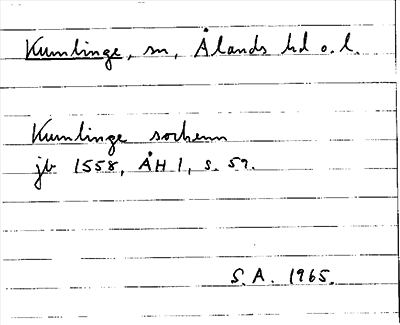 Kumlinge, sn, Ålands hd o. l.
Kumlinge sochenn
jb 1558, ÅH 1, s. 59.
S.A. 1965.